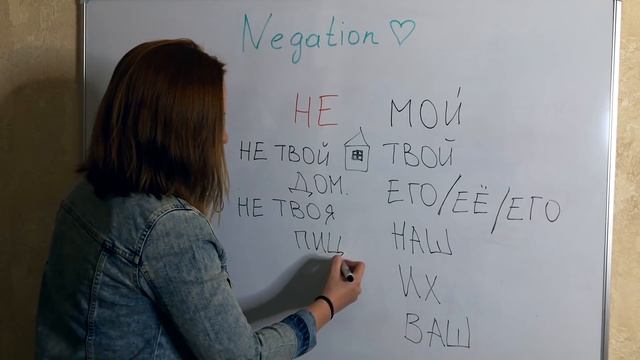 Negation ♡
НЕ МОЙ
НЕ ТВОЙ ТВОЙ
ДОМ.
ЕГО/ЕЁ/ЕГО
НЕ ТВОЯ
ПИЦ НАШ
ИХ
ВАШ